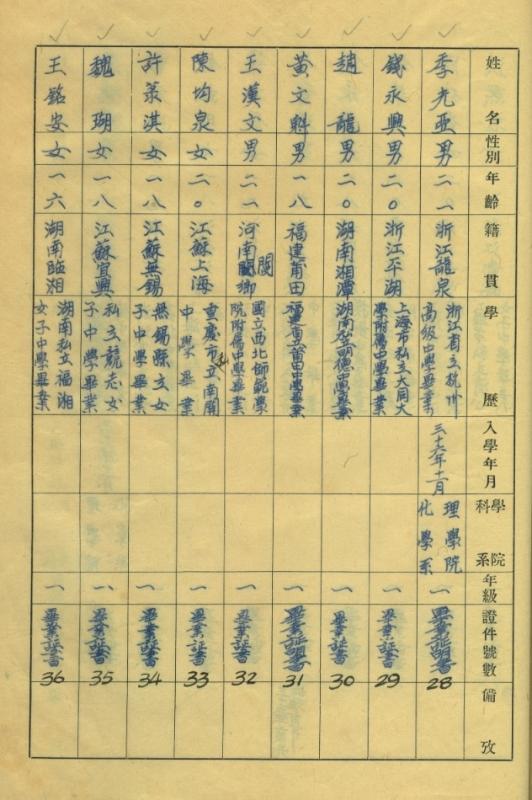 姓名
性別
年齡
籍貫
學歷
入學年月
科學系院
年級
證件號數
備攷
季光亞
男
二一
浙江龍泉
浙江省立杭州
高級中學畢業
三十六年十一月
理學院
化學系
一
畢業証明書
28
錢永興
男
二〇
浙江平湖
上海市私立大同大
學附屬中學畢業
一
畢業証書
29
趙龍
男
二〇
湖南湘潭
湖南私立明德中學畢業
一
畢業証書
30
黃文魁
男
一八
福建莆田
福建省立莆田中學畢業
一
畢業証明書
31
王漢文
男
二一
河南閿鄉
閿
國立西北師範學
院附屬中學畢業
一
畢業証書
32
陳均泉
女
二〇
江蘇上海
重慶市私立南開
中學畢業
一
畢業証書
33
許菉淇
女
一八
江蘇無錫
無錫縣立女
子中學畢業
一
畢業証書
34
魏瑚
女
一八
江蘇宜興
私立競志女
子中學畢業
一
畢業証書
35
王銘安
女
一六
湖南臨湘
湖南私立福湘
女子中學畢業
一
畢業証書
36